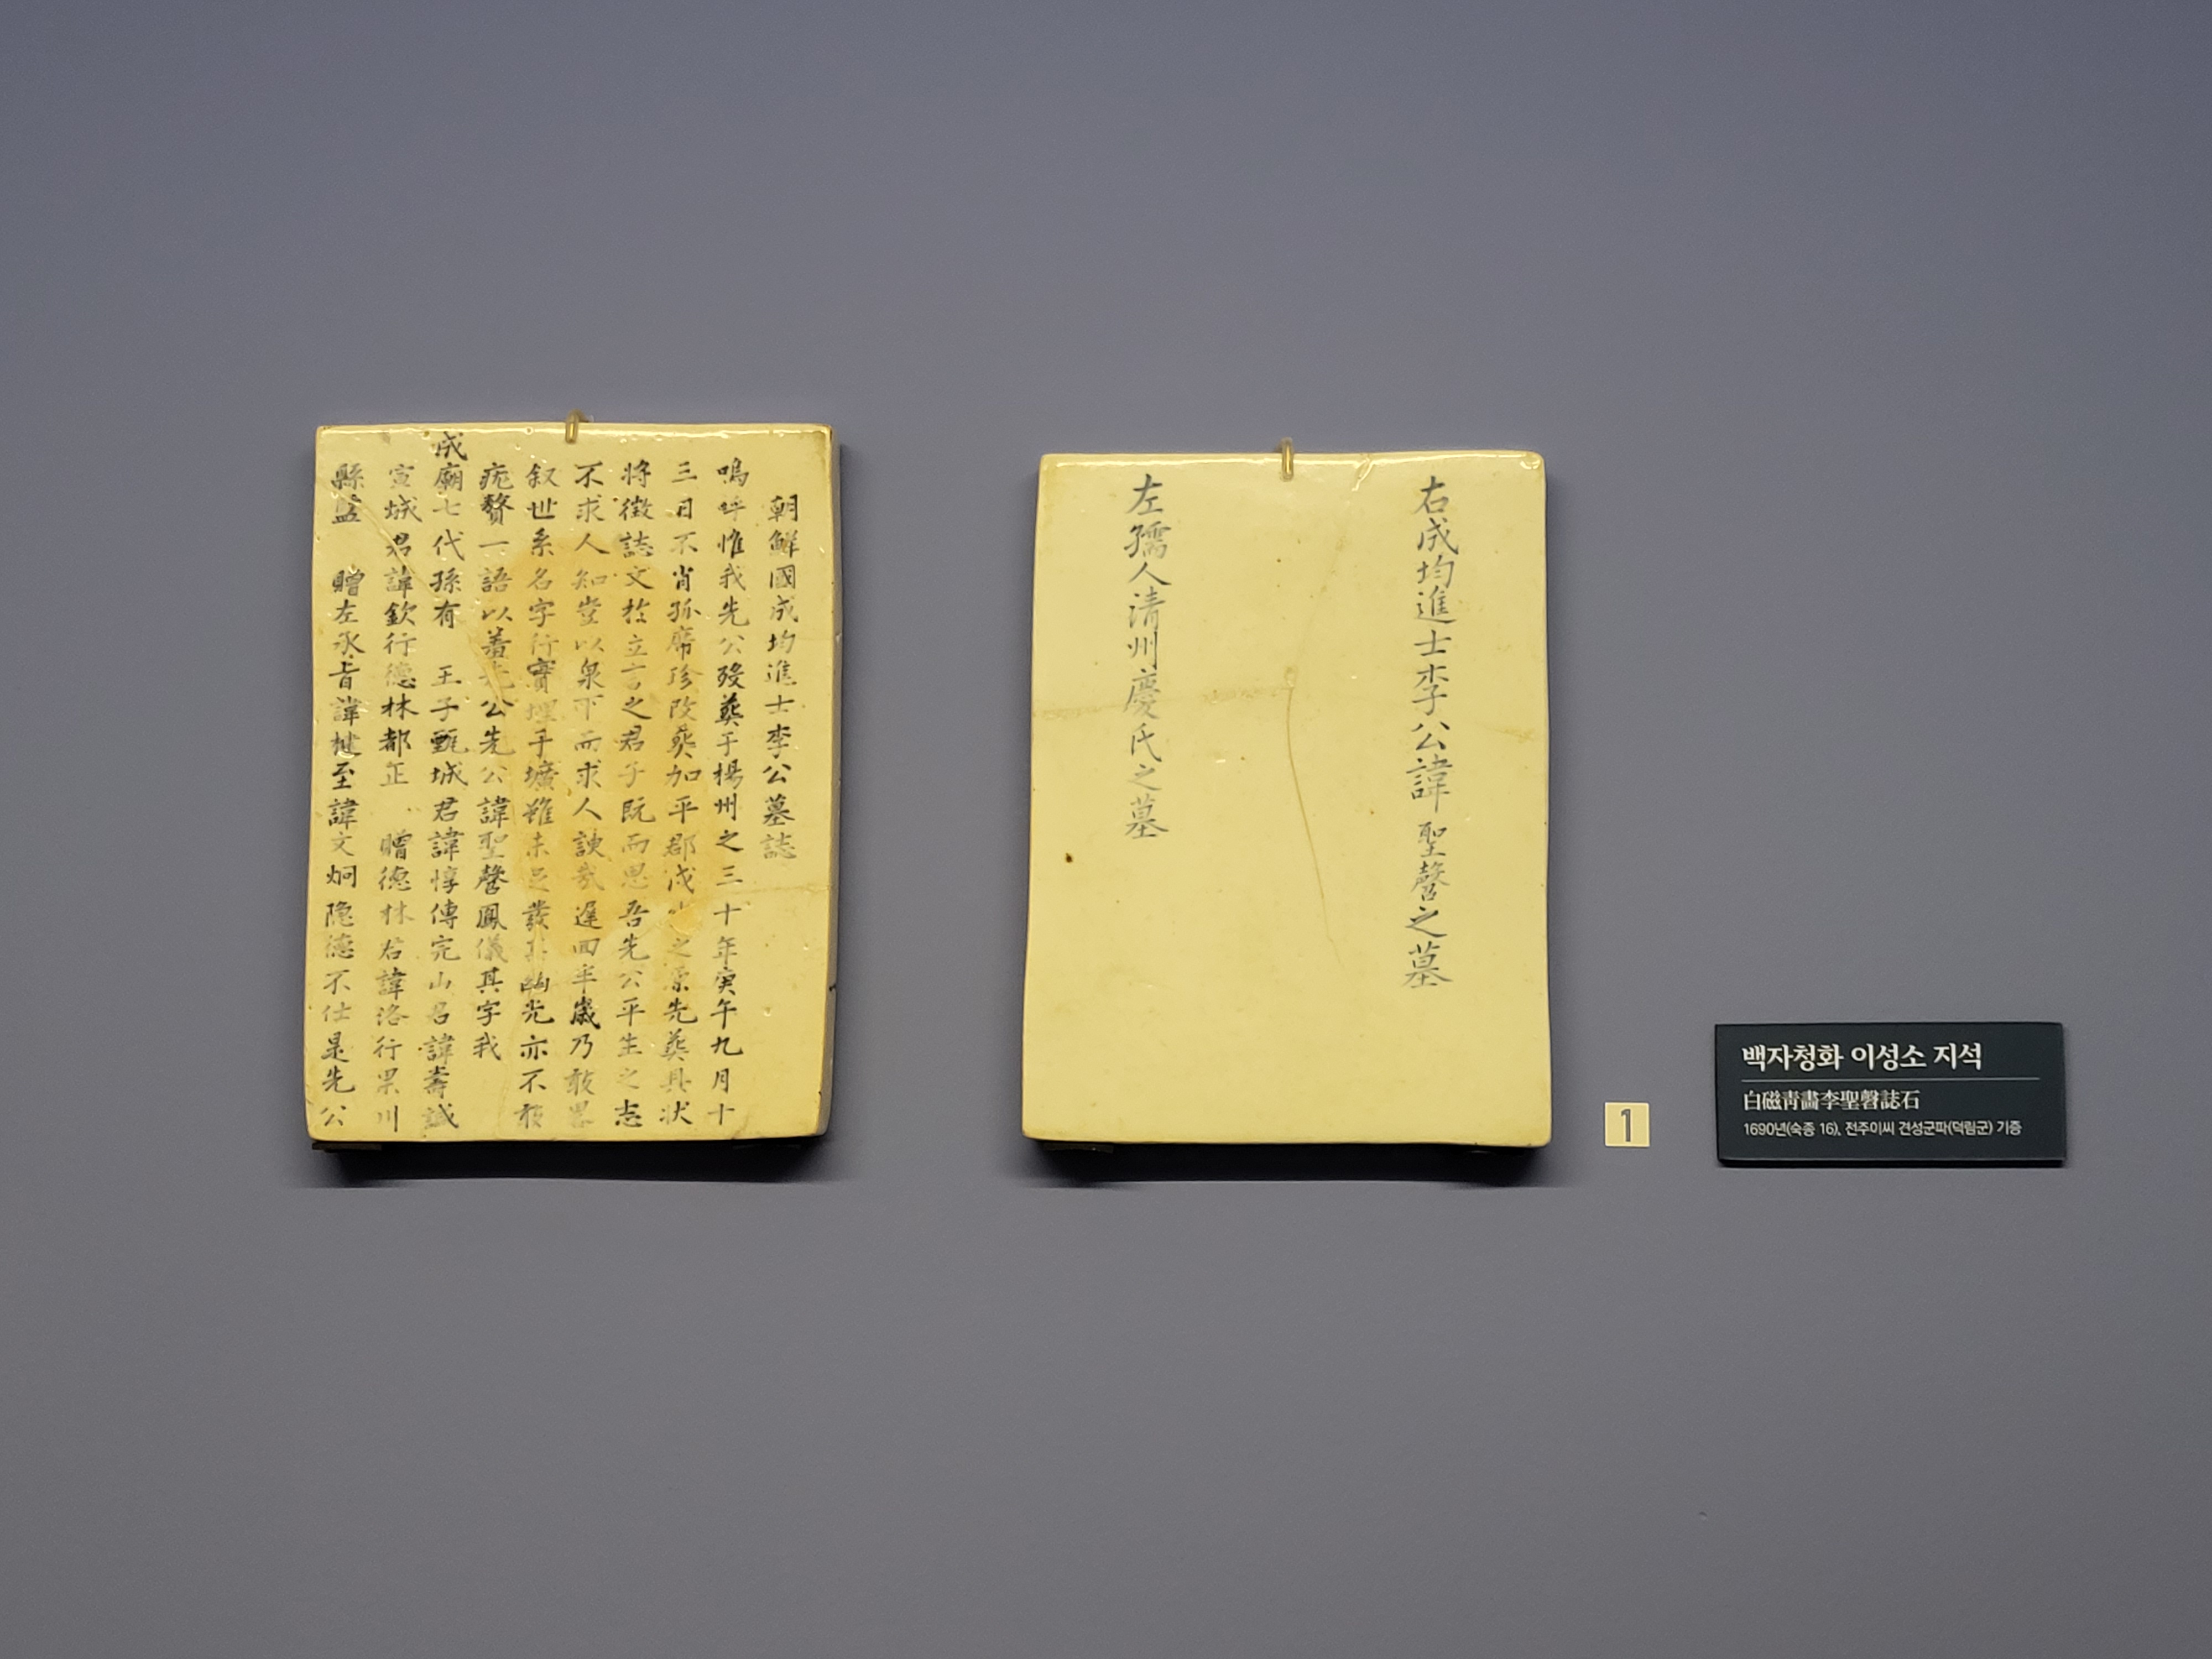 朝鮮國成均進士李公墓誌
嗚呼惟我先公歿葬于楊州之三十年庚午九月十
三日不肖孤席珍改葬加平郡之原先葬具狀
將徵誌文於立言之君子既而思吾先公平生之志
不求人知豈以泉下而求人諛哉遲回半歲乃敢畧
叙世系名字行實埋于壙雖未足發其幽光亦不敢
疣贅一語以羞先公先公諱聖韾鳳儀其字我
成廟七代孫有 王子甄城君諱惇傳完山君諱壽誠
宣城君諱欽行德林都正 贈德林君諱洛行果川
縣監 贈左承旨諱楗至諱文炯隐德不仕是先公
右成均進士李公諱聖韾之墓
左孺人清州慶氏之墓
1
백자청화 이성소 지석
白磁靑畵李聖韾誌石
1690년(숙종 16), 전주이씨 견성군파(덕림군) 기증